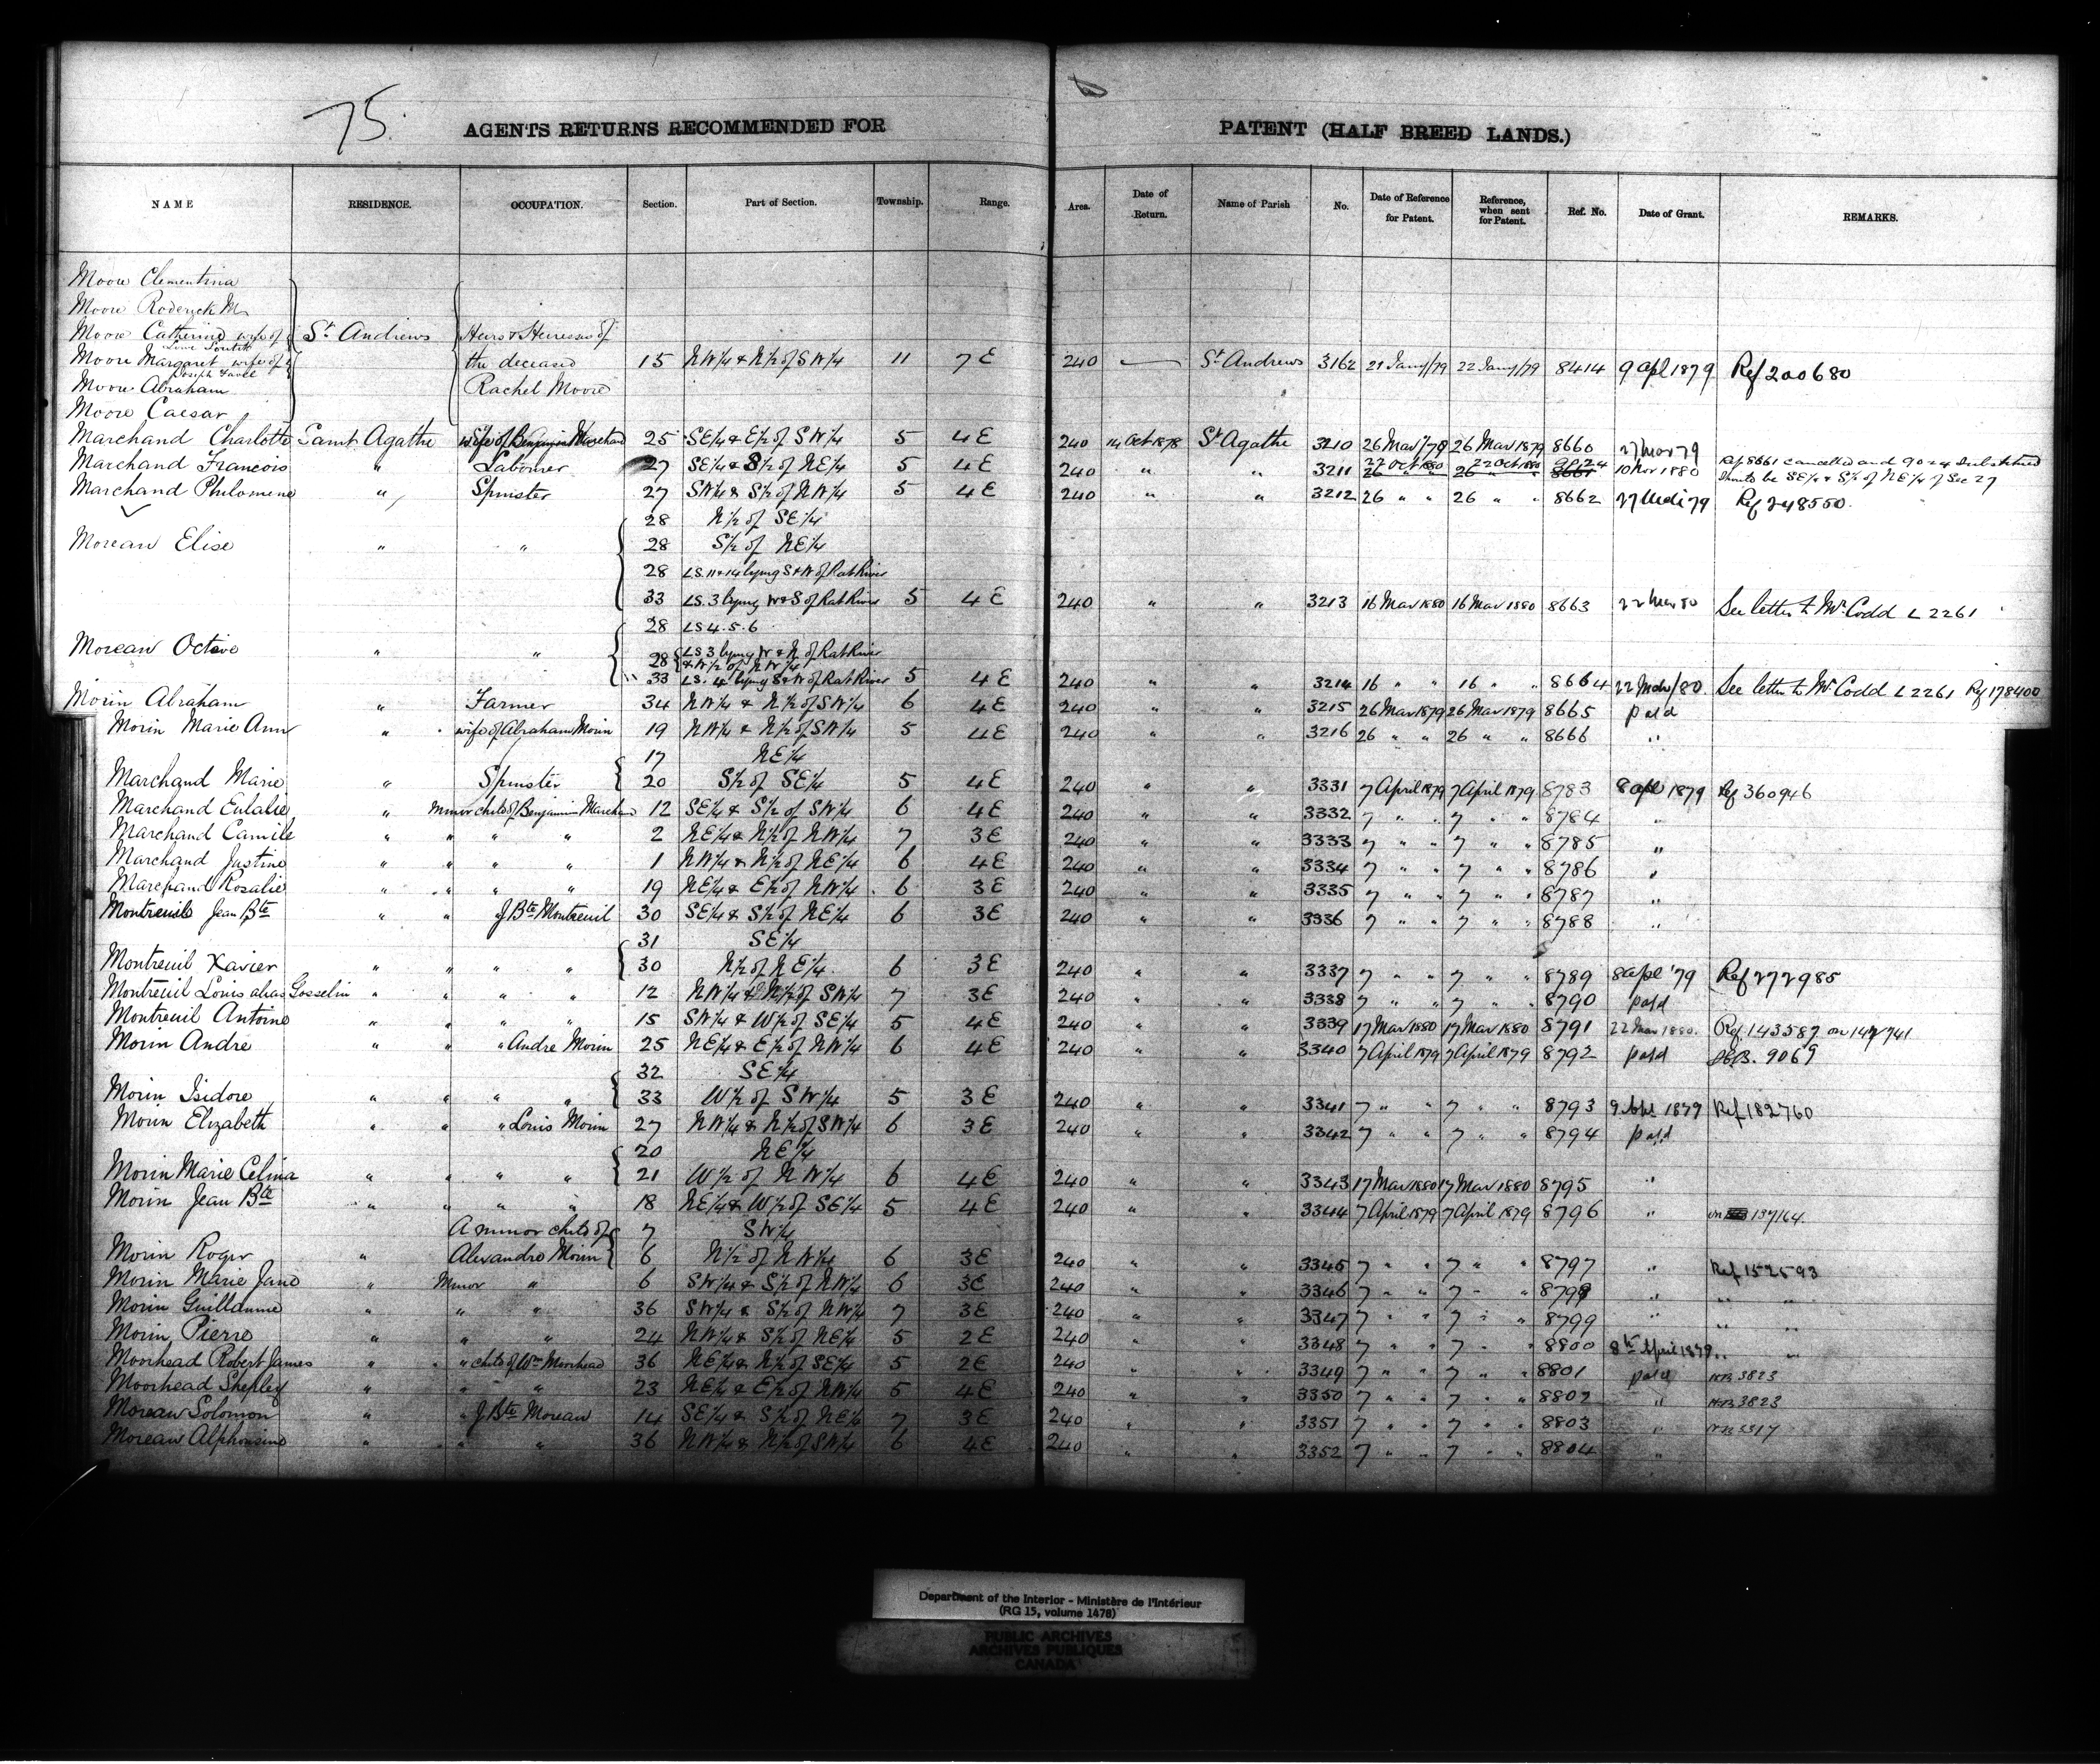 75.
AGENTS RETURNS RECOMMENDED FOR PATENT (HALF BREED LANDS.)
NAME RESIDENCE. OCCUPATION. Section. Part of Section. Township. Range. Area. Date of Return. Name of Parish No. Date of Reference for Patent. Reference, when sent for Patent. Ref. No. Date of Grant. REMARKS.
Moore Clementina
Moore Roderick M
Moore Catherine wife of St Andrews Heirs & Heiresses of
Moore Margaret wife of the deceased 15 NW¼ & N½ of SW¼ 11 7 E 240 St Andrews 3162 21 Jany/79 22 Jany/79 8414 9 apl 1879 Ref 200680
Joseph
Moore Abraham Rachel Moore
Moore Caesar
Marchand Charlotte Saint Agathe wife of Benjamin Marchand 25 SE¼ & E½ of SW¼ 5 4 E 240 14 Oct 1878 St Agathe 3210 26 Mar/79 26 Mar 1879 8660 27 Mar 79
Marchand Francois " Labourer 27 SE¼ & S½ of NE¼ 5 4 E 240 " " 3211 27 Oct 1880 22 Oct 1880 9024 10 Nov 1880 Ref 8661 cancelled and 9024 substituted
26 " " 26 " " 8661 Should be SE¼ & S½ of NE¼ of Sec 27
Marchand Philomene " Spinster 27 SW¼ & S½ of NW¼ 5 4 E 240 " " 3212 26 " " 26 " " 8662 Ref 248550.
28 N½ of SE¼
Moreau Elise " " 28 S½ of NE¼
28 LS. 11 & 14 lying S & W of Rat River
33 LS. 3 lying W & S of Rat River 5 4 E 240 " " 3213 16 Mar 1880 16 Mar 1880 8663 22 Mar 80 See letter to Mr Codd L 2261
28 LS 4. 5. 6
Moreau Octave " " 28 LS 3 lying W & N of Rat River
& W½ of NW¼
33 LS. 4 lying S & W of Rat River 5 4 E 240 " " 3214 16 " " 16 " " 8664 22 Mar/80. See letter to Mr Codd L 2261 Ref 178400
Morin Abraham " Farmer 34 NW¼ & N½ of SW¼ 6 4 E 240 " " 3215 26 Mar 1879 26 Mar 1879 8665 paid
Morin Marie Ann " wife of Abraham Morin 19 NW¼ & N½ of SW¼ 5 4 E 240 " " 3216 26 " " 26 " " 8666 "
17 NE¼
Marchand Marie " Spinster 20 S½ of SE¼ 5 4 E 240 " " 3331 7 April 1879 7 April 1879 8783 8 apl 1879 Ref 360946
Marchand Eulalie " Minor child of Benjamin Marchand 12 SE¼ & S½ of SW¼ 6 4 E 240 " " 3332 7 " " 7 " " 8784 "
Marchand Camile " " " " 2 NE¼ & N½ of NW¼ 7 3 E 240 " " 3333 7 " " 7 " " 8785 "
Marchand Justine " " " " 1 NW¼ & N½ of NE¼ 6 4 E 240 " " 3334 7 " " 7 " " 8786 "
Marchand Rosalie " " " " 19 NE¼ & E½ of NW¼ 6 3 E 240 " " 3335 7 " " 7 " " 8787 "
Montreuil Jean Bte " " J Bte Montreuil 30 SE¼ & S½ of NE¼ 6 3 E 240 " " 3336 7 " " 7 " " 8788 "
31 SE¼
Montreuil Xavier " " " " 30 N½ of NE¼ 6 3 E 240 " " 3337 7 " " 7 " " 8789 8 apl '79 Ref 272985
Montreuil Louis alias Gosselin " " " " 12 NW¼ & N½ of SW¼ 7 3 E 240 " " 3338 7 " " 7 " " 8790 paid
Montreuil Antoine " " " " 15 SW¼ & W½ of SE¼ 5 4 E 240 " " 3339 17 Mar 1880 17 Mar 1880 8791 22 Mar 1880. Ref. 143587 on 147741
Morin Andre " " " Andre Morin 25 NE¼ & E½ of NW¼ 6 4 E 240 " " 3340 7 April 1879 7 April 1879 8792 paid 9069
32 SE¼
Morin Isidore " " " " 33 W½ of SW¼ 5 3 E 240 " " 3341 7 " " 7 " " 8793 9 Apl 1879 Ref 182760
Morin Elizabeth " " " Louis Morin 27 NW¼ & N½ of SW¼ 6 3 E 240 " " 3342 7 " " 7 " " 8794 paid
20 NE¼
Morin Marie Celina " " " " 21 W½ of NW¼ 6 4 E 240 " " 3343 17 Mar 1880 17 Mar 1880 8795 "
Morin Jean Bte " " " " 18 NE¼ & W½ of SE¼ 5 4 E 240 " " 3344 7 April 1879 7 April 1879 8796 " on 137164.
A minor child of 7 SW¼
Morin Roger " Alexandre Morin 6 N½ of NW¼ 6 3 E 240 " " 3345 7 " " 7 " " 8797 " Ref 152593
Morin Marie Jane " Minor " 6 SW¼ & S½ of NW¼ 6 3 E 240 " " 3346 7 " " 7 " " 8798 " " "
Morin Guillaume " " " 36 SW¼ & S½ of NW¼ 7 3 E 240 " " 3347 7 " " 7 " " 8799 " " "
Morin Pierre " " " 24 NW¼ & S½ of NE¼ 5 2 E 240 " " 3348 7 " " 7 " " 8800 8th April 1879 " "
Moorhead Robert James " " child of Wm Moorhead 36 NE¼ & N½ of SE¼ 5 2 E 240 " " 3349 7 " " 7 " " 8801 paid HB 3823
Moorhead Shepley " " " 23 NE¼ & E½ of NW¼ 5 4 E 240 " " 3350 7 " " 7 " " 8802 " HB 3823
Moreau Solomon " " J Bte Moreau 14 SE¼ & S½ of NE¼ 7 3 E 240 " " 3351 7 " " 7 " " 8803 "
Moreau Alphonsine " " " 36 NW¼ & N½ of SW¼ 6 4 E 240 " " 3352 7 " " 7 " " 8804 "
Department of the Interior - Ministère de l'Intérieur
(RG 15, volume 1478)
PUBLIC ARCHIVES
ARCHIVES PUBLIQUES
CANADA